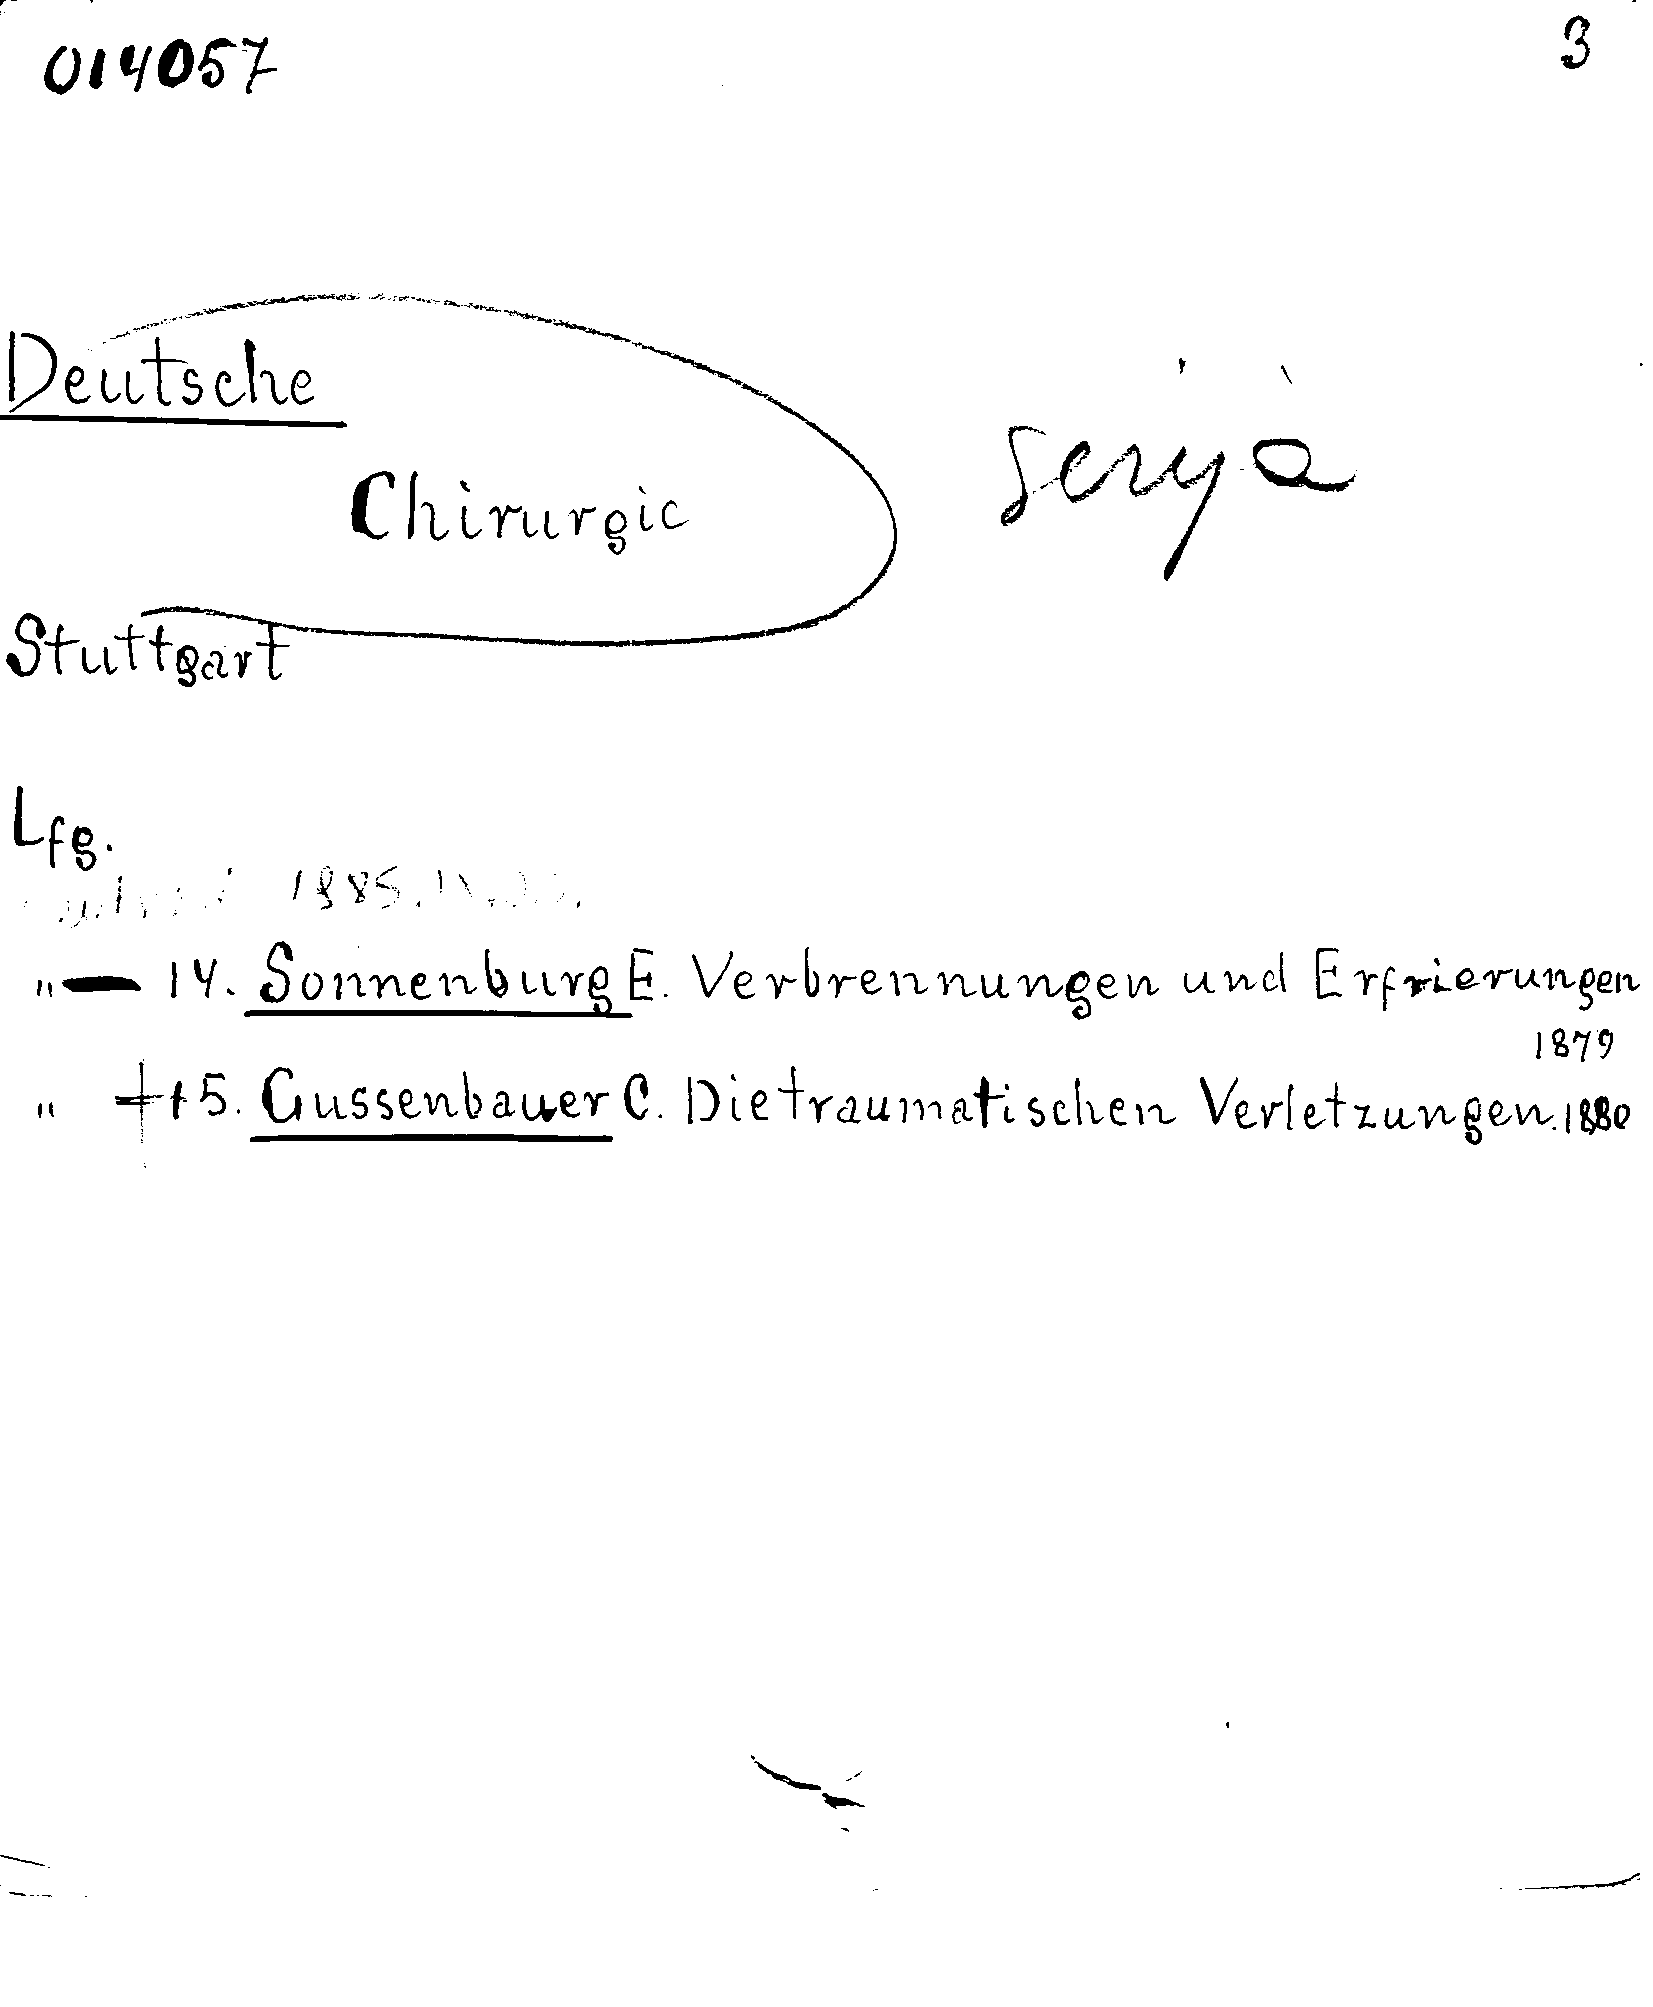 014057 3
Deutsche
Chirurgie
serija
Stuttgart
Lfg.
1885.
" — 14. Sonnenburg E. Verbrennungen und Erfrierungen
1879
" + 15. Gussenbauer C. Die traumatischen Verletzungen. 1880